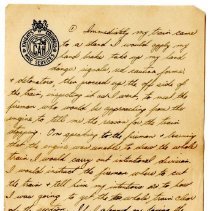 ① Immediately my train came
to a stand I would apply my
hand brake take up my hand
danger signals, not caution forms
& detonators, then proceed up the off side of
the train, inspecting it as I went, to meet the
fireman who would be approaching from the
engine to tell me the reason for the train
stopping. On speaking to the fireman & learning
that the engine was unable to draw the whole
train I would carry out intentional division.
I would instruct the fireman where to cut
the train & tell him my intentions as to how
I was going to get the whole train clear
of the section.